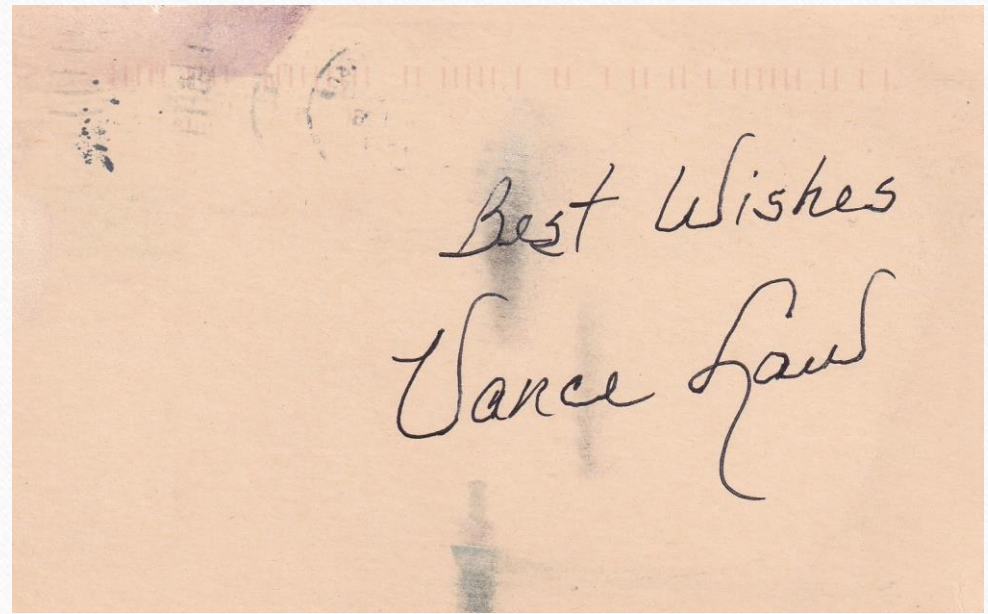 Best Wishes
Vance Law